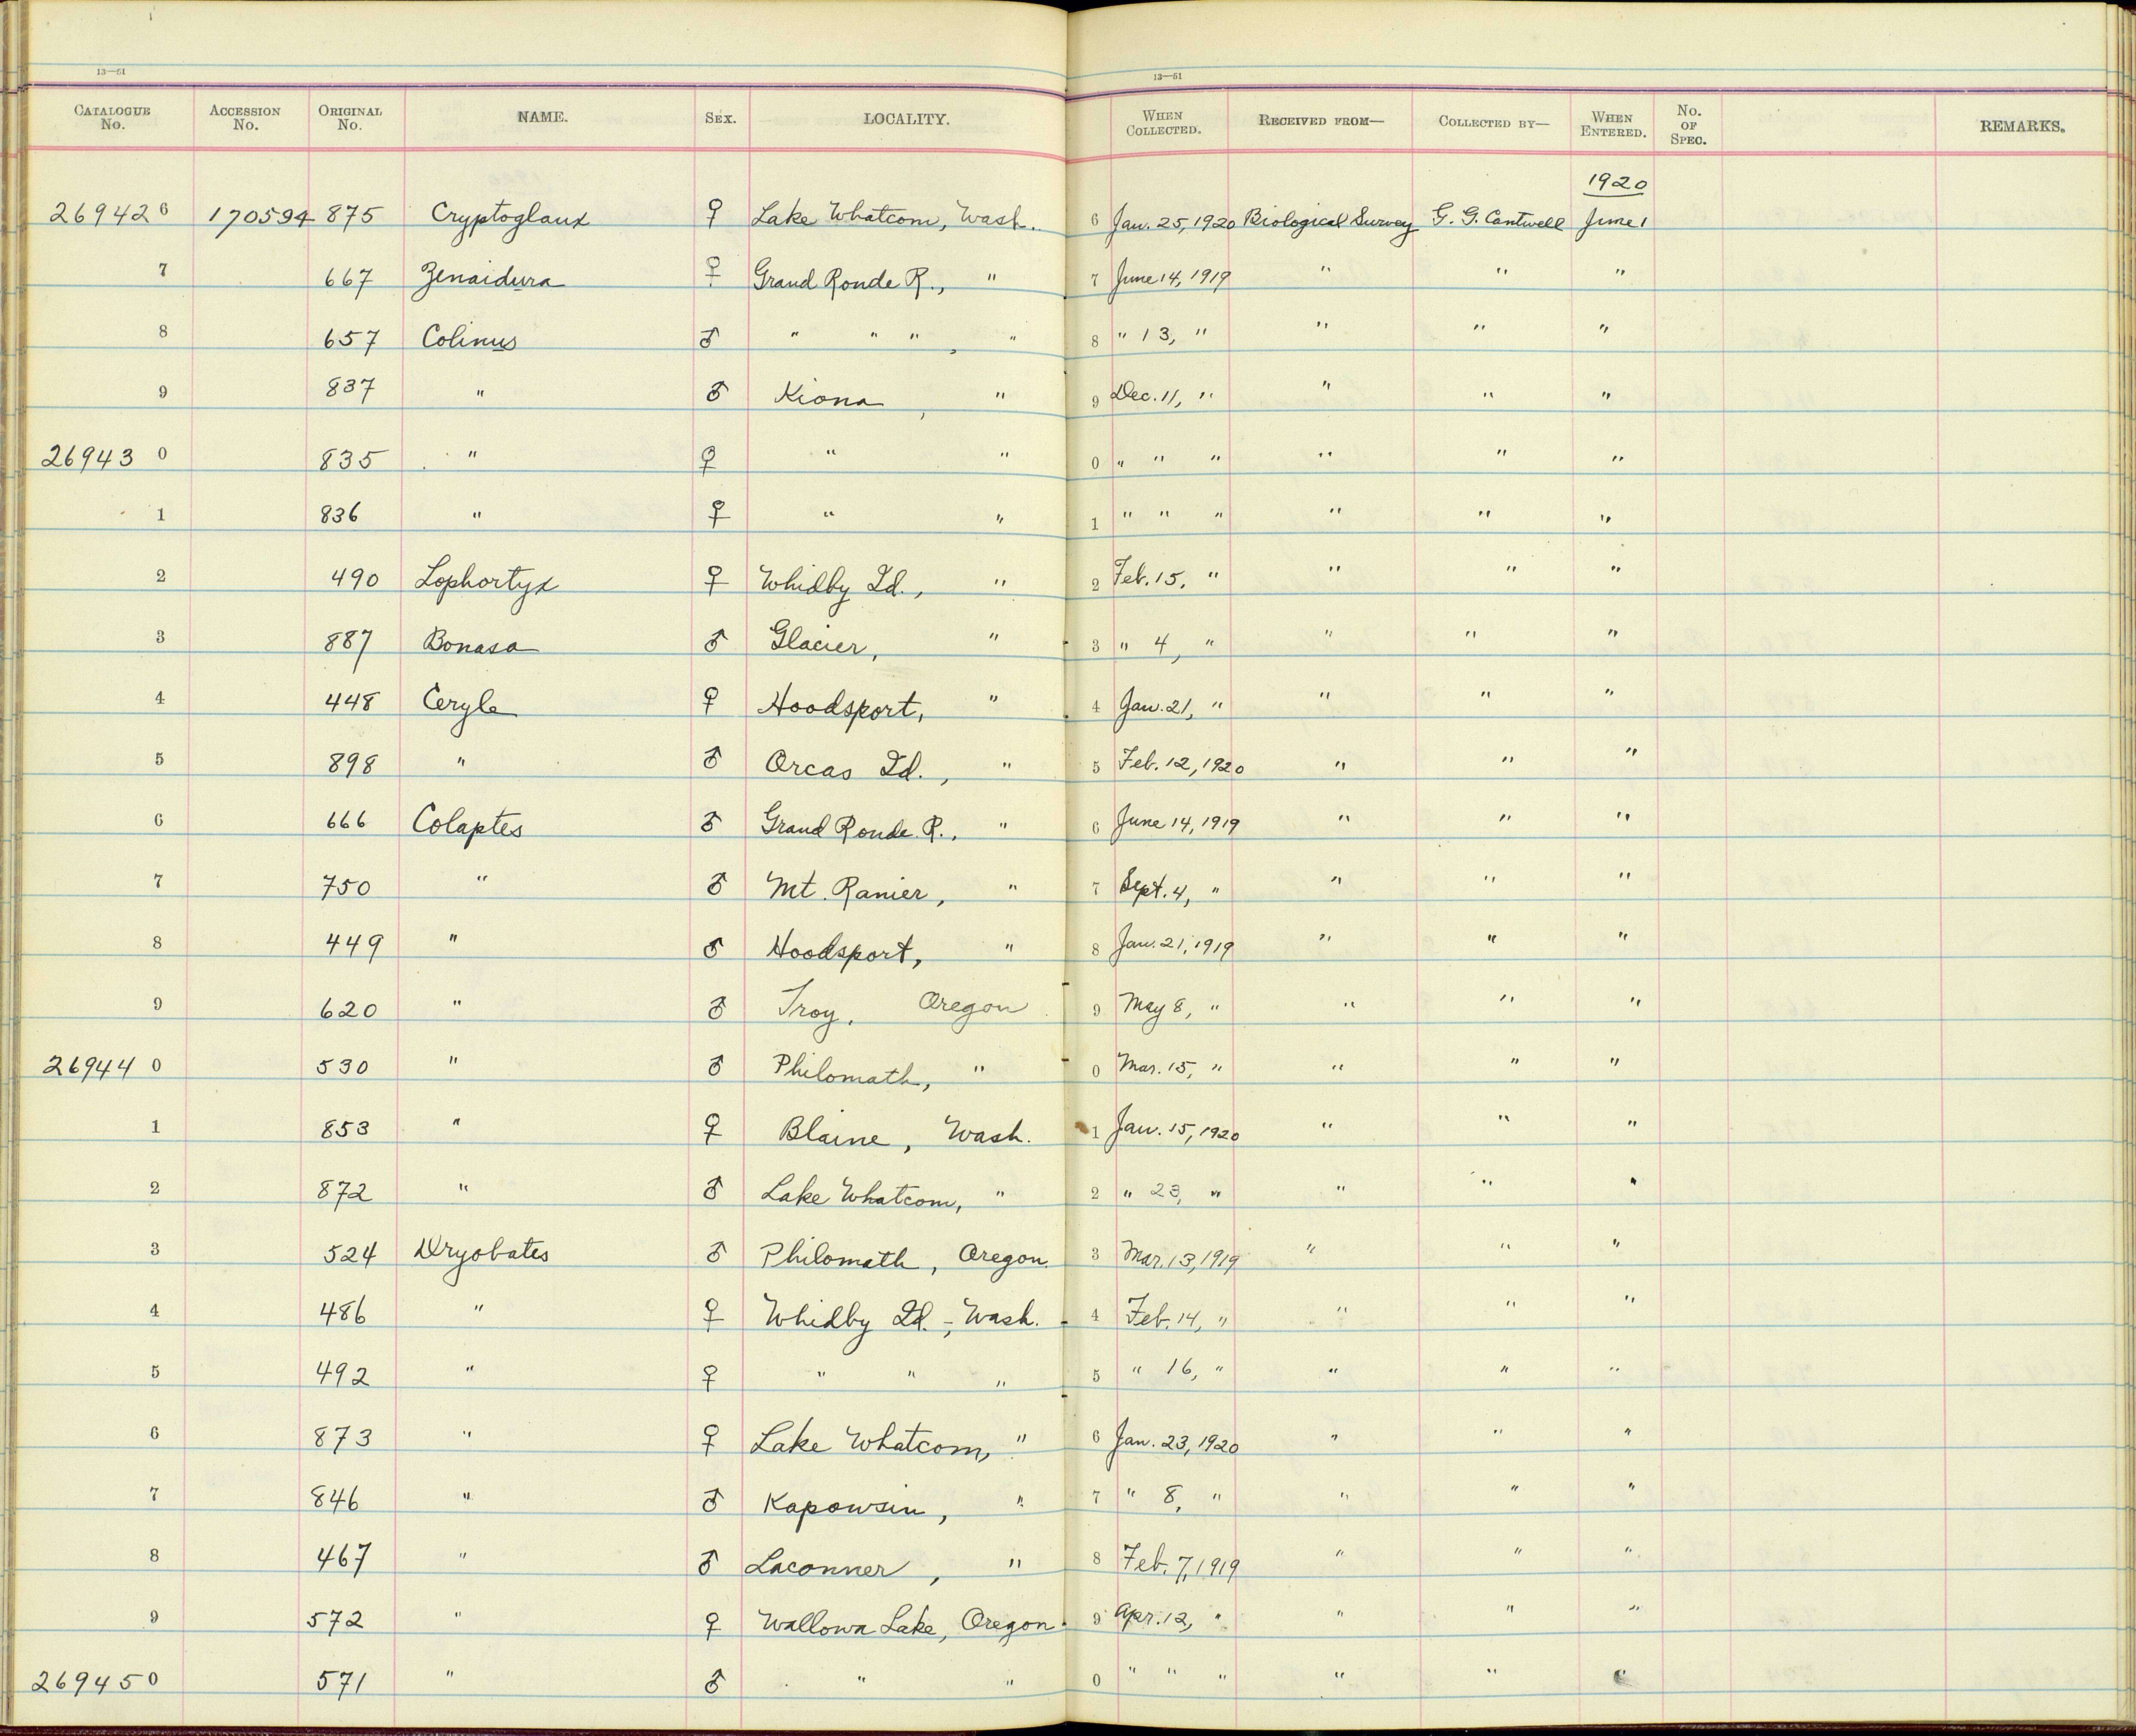 13—51 13—51
CATALOGUE No. ACCESSION No. ORIGINAL No. NAME. SEX. LOCALITY. WHEN COLLECTED. RECEIVED FROM— COLLECTED BY— WHEN ENTERED. No. OF SPEC. REMARKS.
1920
269426 170594 875 Cryptoglaux ♀ Lake Whatcom, Wash. 6 Jan. 25, 1920 Biological Survey G. G. Cantwell June 1
7 667 Zenaidura ♀ Grand Ronde R., " 7 June 14, 1919 " " "
8 657 Colinus ♂ " " " , " 8 " 13, " " " "
9 837 " ♂ Kiona , " 9 Dec. 11, " " " "
269430 835 " ♀ " " 0 " " " " " "
1 836 " ♀ " " 1 " " " " " "
2 490 Lophortyx ♀ Whidby Id., " 2 Feb. 15, " " " "
3 887 Bonasa ♂ Glacier, " 3 " 4, " " " "
4 448 Ceryle ♀ Hoodsport, " 4 Jan. 21, " " " "
5 898 " ♂ Orcas Id. , " 5 Feb. 12, 1920 " " "
6 666 Colaptes ♂ Grand Ronde R., " 6 June 14, 1919 " " "
7 750 " ♂ Mt. Ranier, " 7 Sept. 4, " " " "
8 449 " ♂ Hoodsport, " 8 Jan. 21, 1919 " " "
9 620 " ♂ Troy, Oregon 9 May 8, " " " "
269440 530 " ♂ Philomath, " 0 Mar. 15, " " " "
1 853 " ♀ Blaine, Wash. 1 Jan. 15, 1920 " " "
2 872 " ♂ Lake Whatcom, " 2 " 23, " " " "
3 524 Dryobates ♂ Philomath, Oregon. 3 Mar. 13, 1919 " " "
4 486 " ♀ Whidby Id. -, Wash. 4 Feb. 14, " " " "
5 492 " ♀ " " " 5 " 16, " " " "
6 873 " ♀ Lake Whatcom, " 6 Jan. 23, 1920 " " "
7 846 " ♂ Kapowsin, " 7 " 8, " " " "
8 467 " ♂ Laconner , " 8 Feb. 7, 1919 " " "
9 572 " ♀ Wallowa Lake, Oregon. 9 Apr. 12, " " " "
269450 571 " ♂ " " 0 " " " " " "